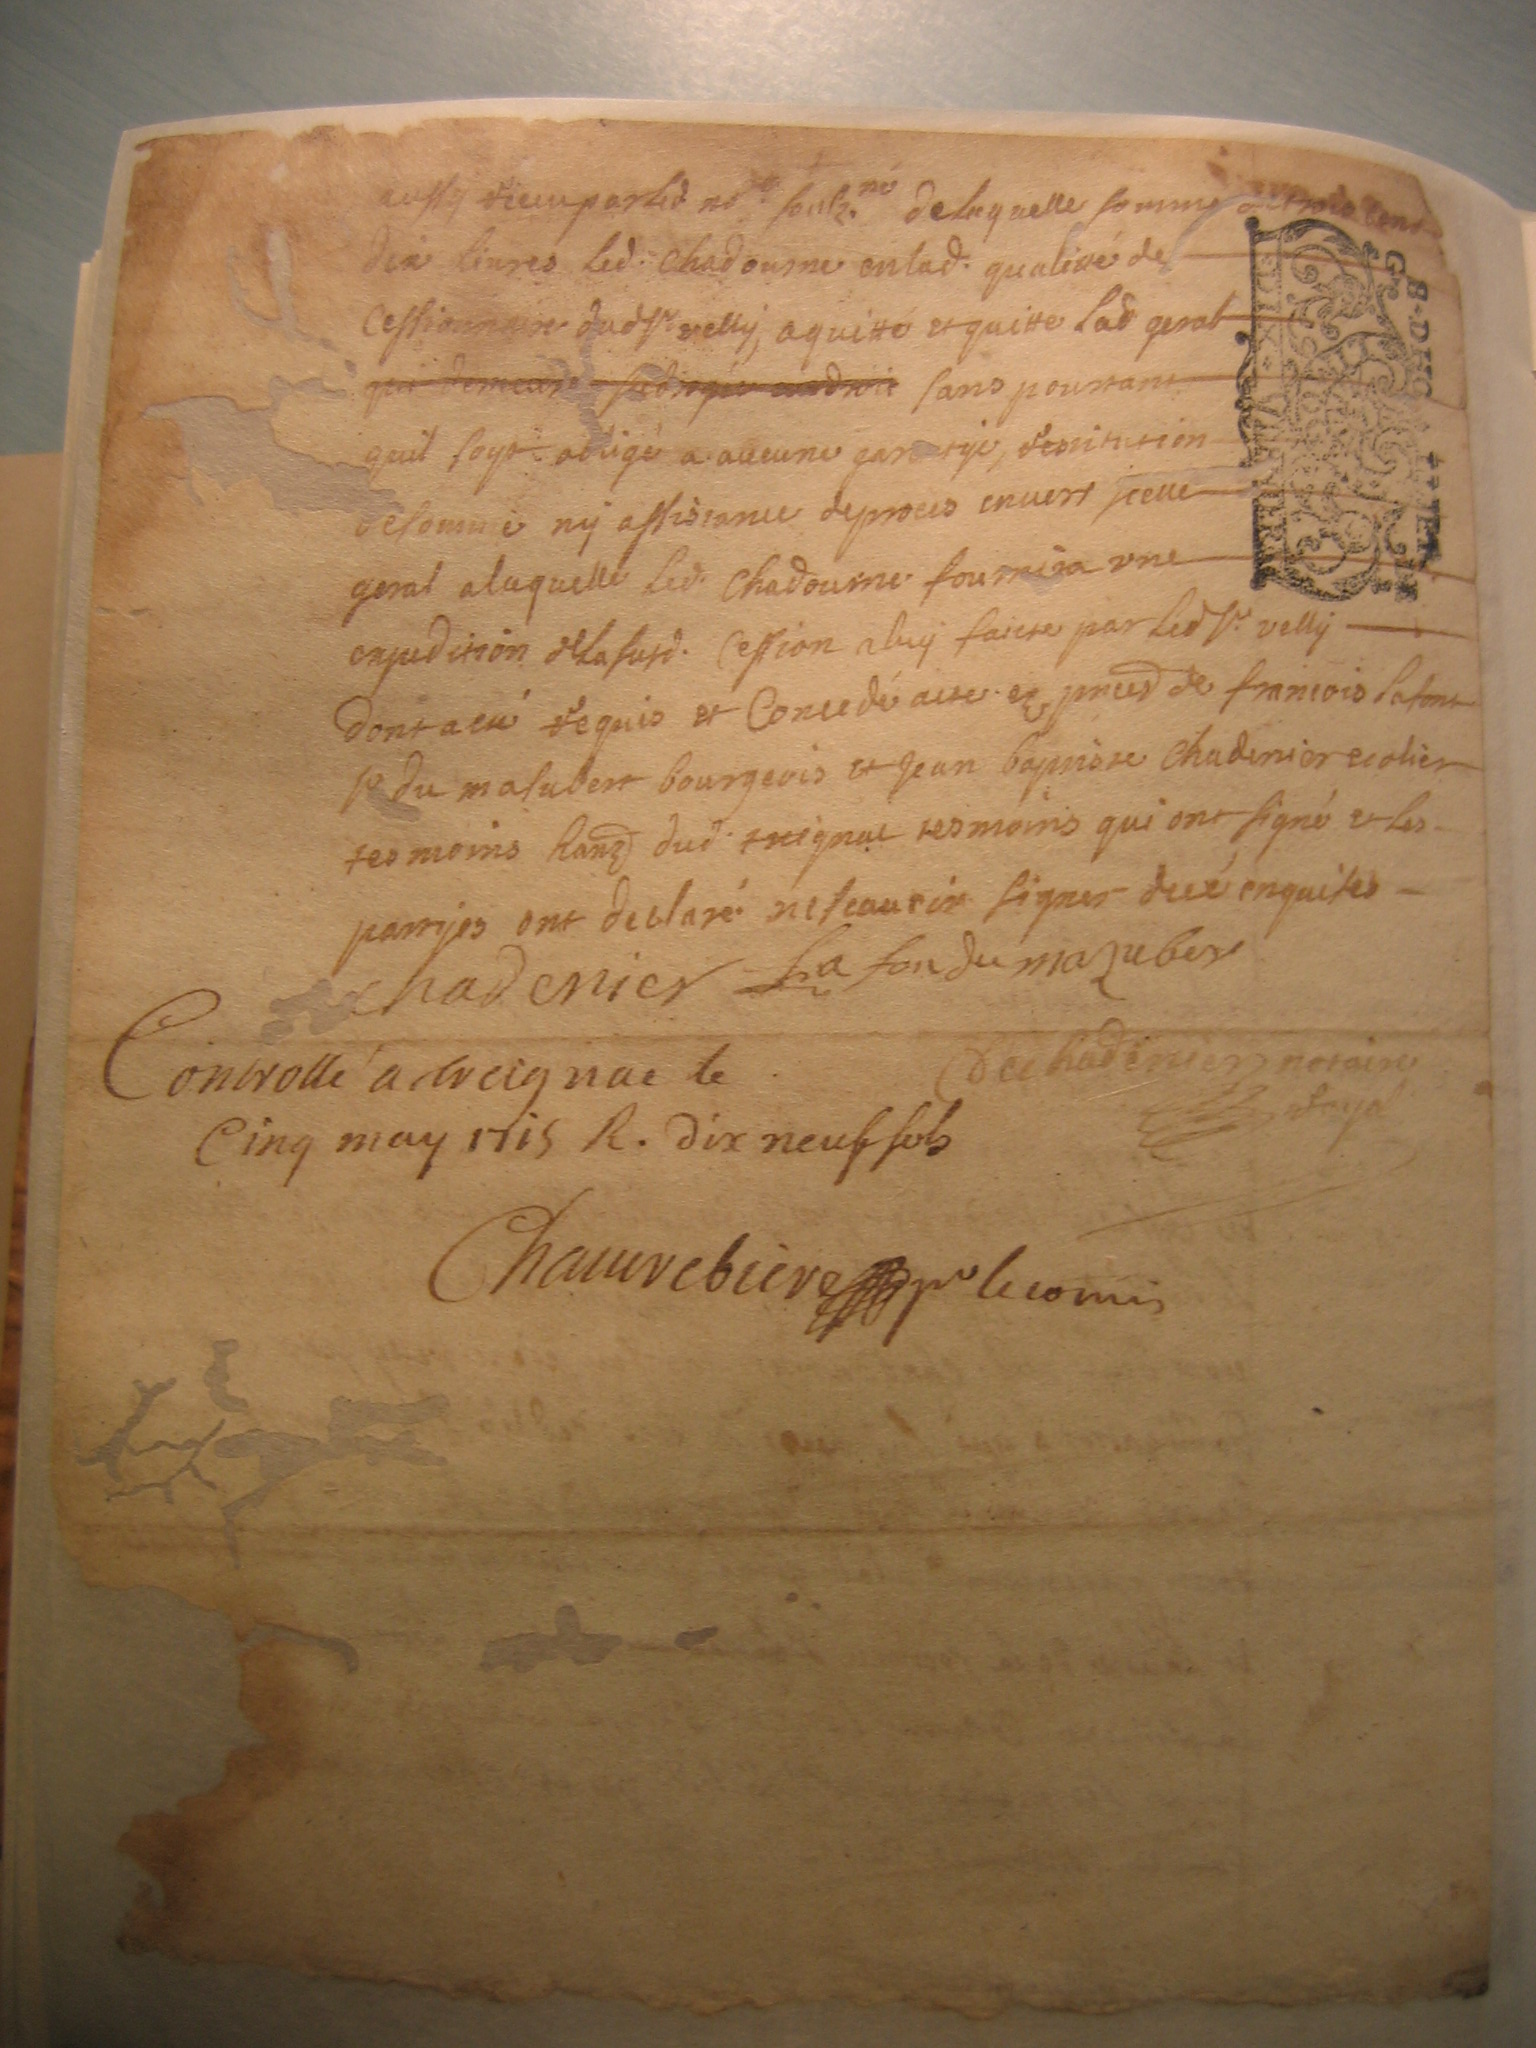 aussy receu par led nore soubz.né de laquelle somme de cent
dix livres led. Chadourne en lad. qualitté de
Cessionnaire dud Sr velly, a quitté et quitte lad geral
qui demeure sans pourtant
quil soyt obligé a aucune garantye, restitution
de somme ny assistance de proces envers jcelle
geral a laquelle led. Chadourne fournira une
expedition de la susd. Cession a luy faicte par led Sr. velly
dont a esté requis et Concedé acte ez pnces de francois lafont
Sr du masubert bourgeois et Jean baptiste Chadenier ecolier
tesmoins hantz dud. treignac tesmoins qui ont signé et les
partyes ont declaré ne scauoir signer de ce enquises
Chadenier La fon du mazubert
Controllé a treignac le
Cinq may 1715 R. dix neuf sols
Dechadenier notaire
royal
Chauvrebiere pr le comis